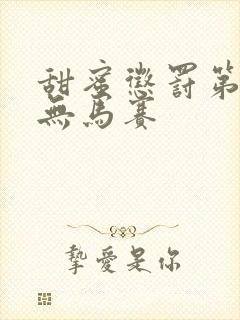 甜蜜懲罰第
無馬賽
摯愛是你